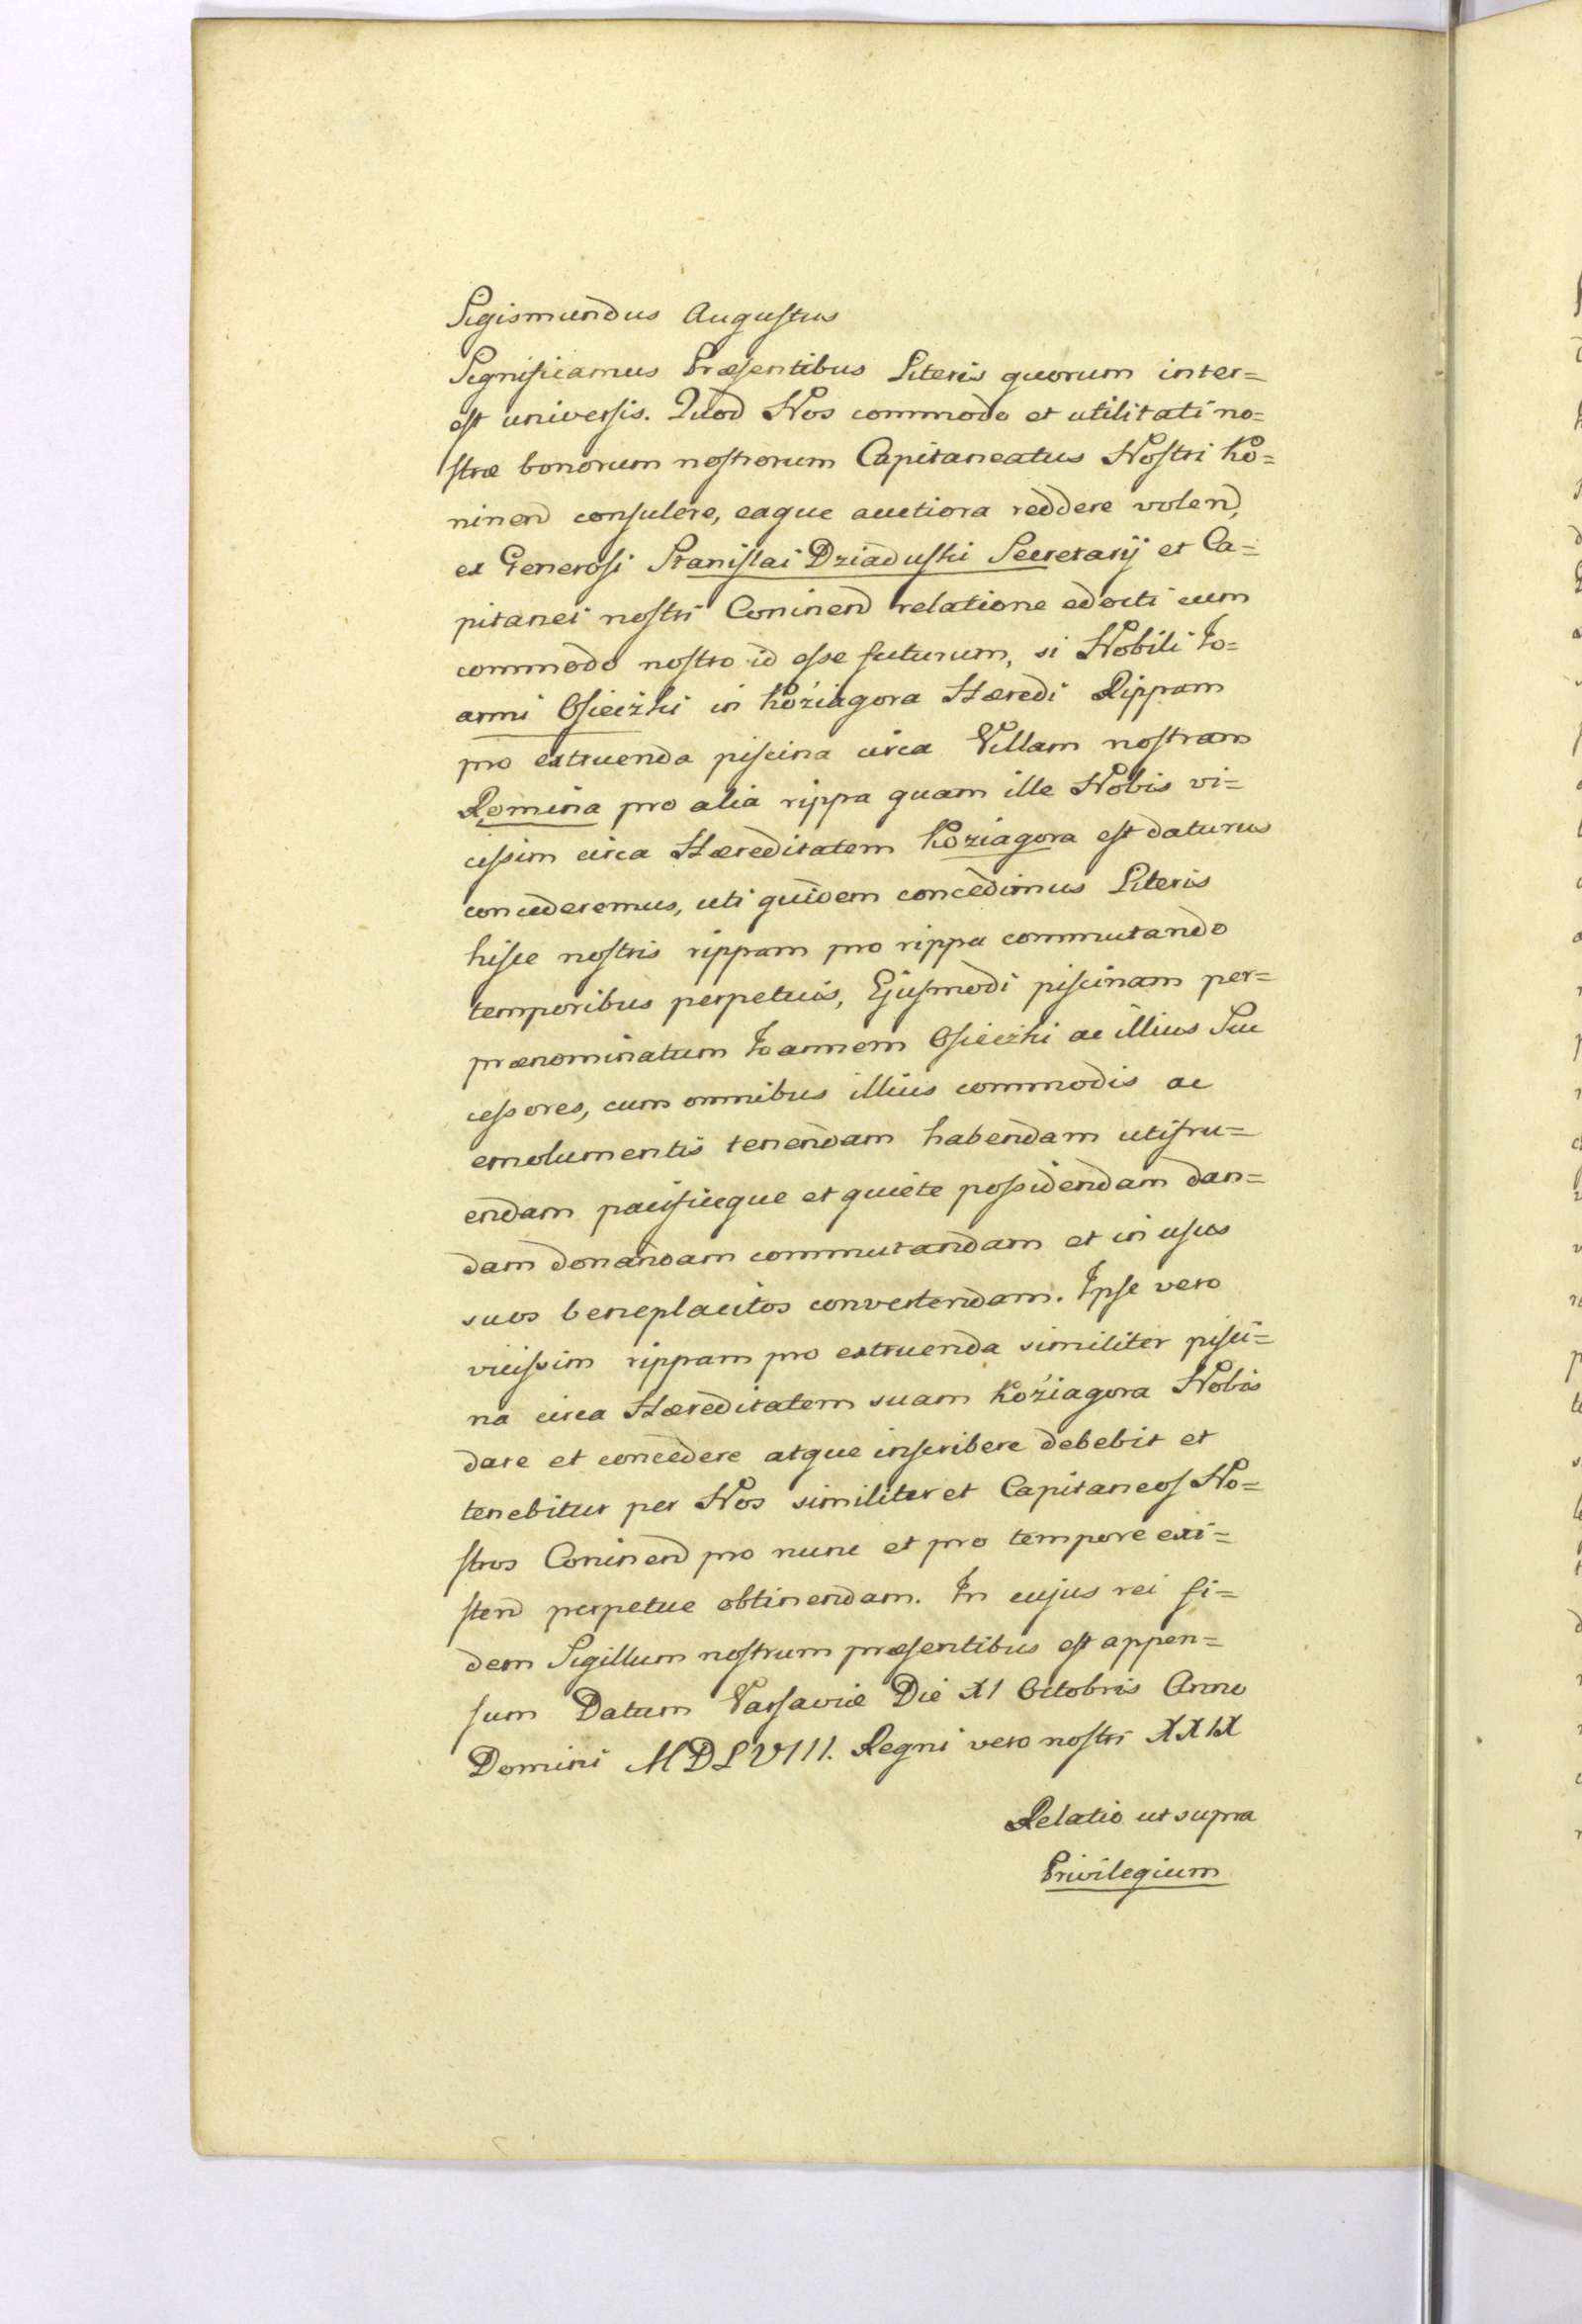 Sigismundus Augustus
Significamus Præsentibus Literis quorum inter=
est universis. Quod Nos commodo et utilitati no=
stræ bonorum nostrorum Capitaneatus Nostri Ko=
ninend consulere, eaque auctiora reddere volend,
ex Generosi Stanislai Dziaduski Secretarij et Ca=
pitanei nostri Coninend relatione edocti cum
commodo nostro id esse futurum, si Nobili Jo=
anni Osieczki in Koziagora Hæredi Rippam
pro extruenda piscina circa Villam nostram
Romina pro alia rippa quam ille Nobis vi=
cissim circa Hæreditatem Koziagora est daturus
concederemus, uti quidem concedimus Literis
hisce nostris rippam pro rippa commutando
temporibus perpetuis, Ejusmodi piscinam per=
prænominatum Joannem Osieczki ac illius Suc
cessores, cum omnibus illius commodis ac
emolumentis tenendam habendam utifru=
endam pacificque et quiete possidendam dan=
dam donandam commutandam et in usus
suos beneplacitos convertendam. Ipse vero
vicissim rippam pro extruenda similiter pisci=
na circa Hæreditatem suam Koziagora Nobis
dare et concedere atque inscribere debebit et
tenebitur per Nos similiter et Capitaneos No=
stros Coninend pro nunc et pro tempore exi=
stend perpetue obtinendam. In cujus rei fi=
dem Sigillum nostrum præsentibus est appen=
sum Datum Varsaviæ Die XI Octobris Anno
Domini MDLVIII. Regni vero nostri XXIX
Relatio ut supra
Privilegium